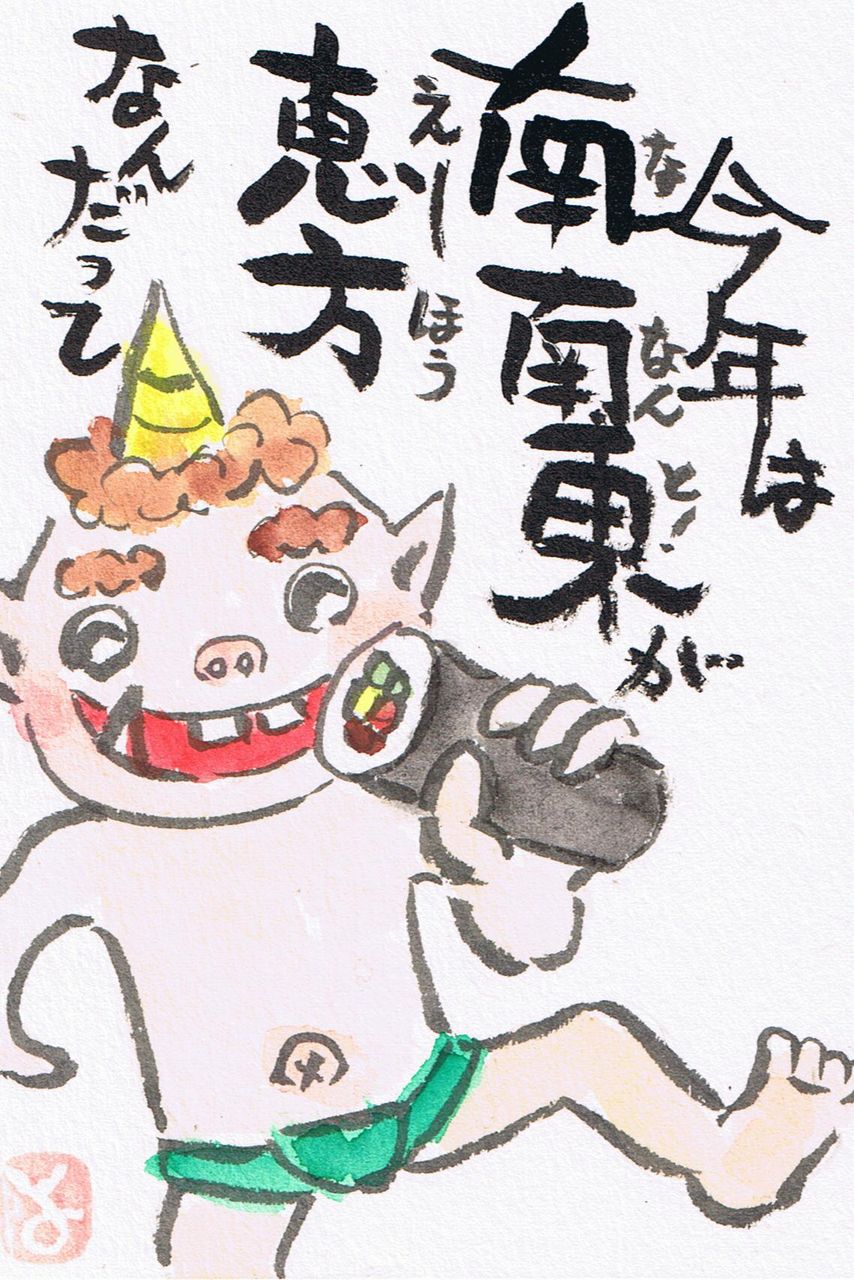 今年は
南南東が
な なんとー
恵方
えーほう
なんだって
よ